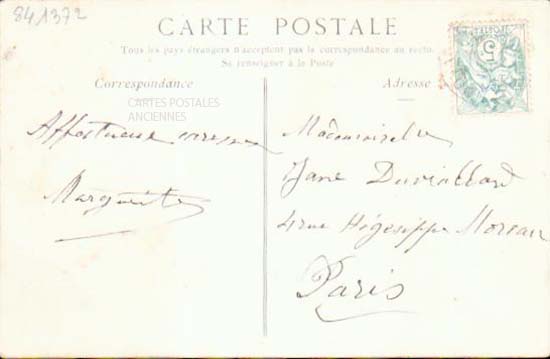 841372
CARTE POSTALE
Tous les pays étrangers n'acceptent pas la correspondance au recto.
Se renseigner à la Poste
Correspondance
Adresse
CARTES POSTALES
ANCIENNES
5
Affectueuse caresse
Marguerite
Mademoiselle
Jane Duvillard
4 rue Hégésippe Moreau
Paris